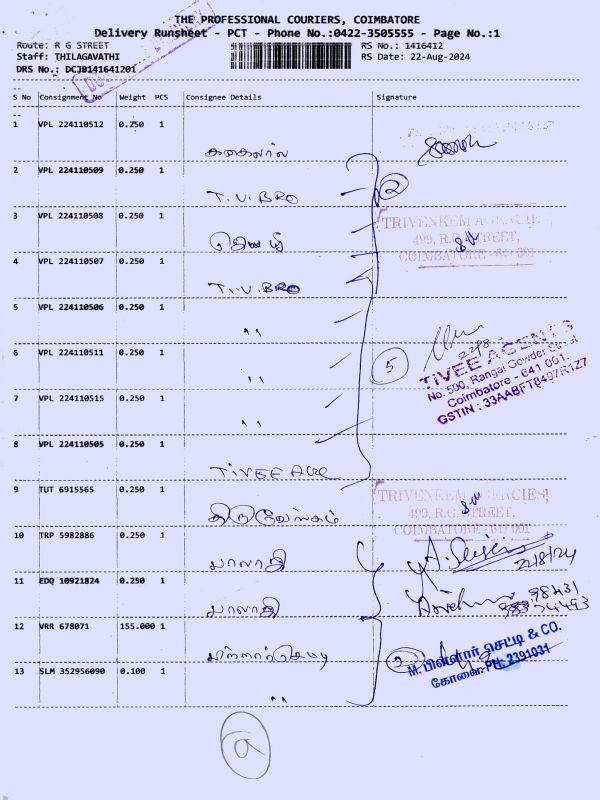 THE PROFESSIONAL COURIERS, COIMBATORE
Delivery Runsheet - PCT - Phone No.:0422-3505555 - Page No.:1
Route: R G STREET RS No.: 1416412
Staff: THILAGAVATHI RS Date: 22-Aug-2024
DRS No.: DCJB141641201
S No Consignment No Weight PCS Consignee Details Signature
1 VPL 224110512 0.250 1
2 VPL 224110509 0.250 1
T.V.BRO
2
3 VPL 224110508 0.250 1
TRIVENKEM AGENCIES
499, R.G. STREET,
COIMBATORE - 641 001
4 VPL 224110507 0.250 1
T.V.BRO
5 VPL 224110506 0.250 1
"
6 VPL 224110511 0.250 1
"
5
TIVEE AGENTS
No. 500, Rangai Gowder Street
Coimbatore - 641 001.
GSTIN : 33AABFT8497R1Z7
7 VPL 224110515 0.250 1
"
8 VPL 224110505 0.250 1
TIVEE AGE
9 TUT 6915565 0.250 1
TRIVENKEM AGENCIES
499, R.G. STREET,
COIMBATORE - 641 001
10 TRP 5982886 0.250 1
பாலாஜி
22/8/24
11 EDQ 10921824 0.250 1
பாலாஜி
98431
74493
12 VRR 678071 155.000 1
M. பிள்ளார் செட்டி & CO.
கோவை. PH: 2391031
13 SLM 352956090 0.100 1
"
a